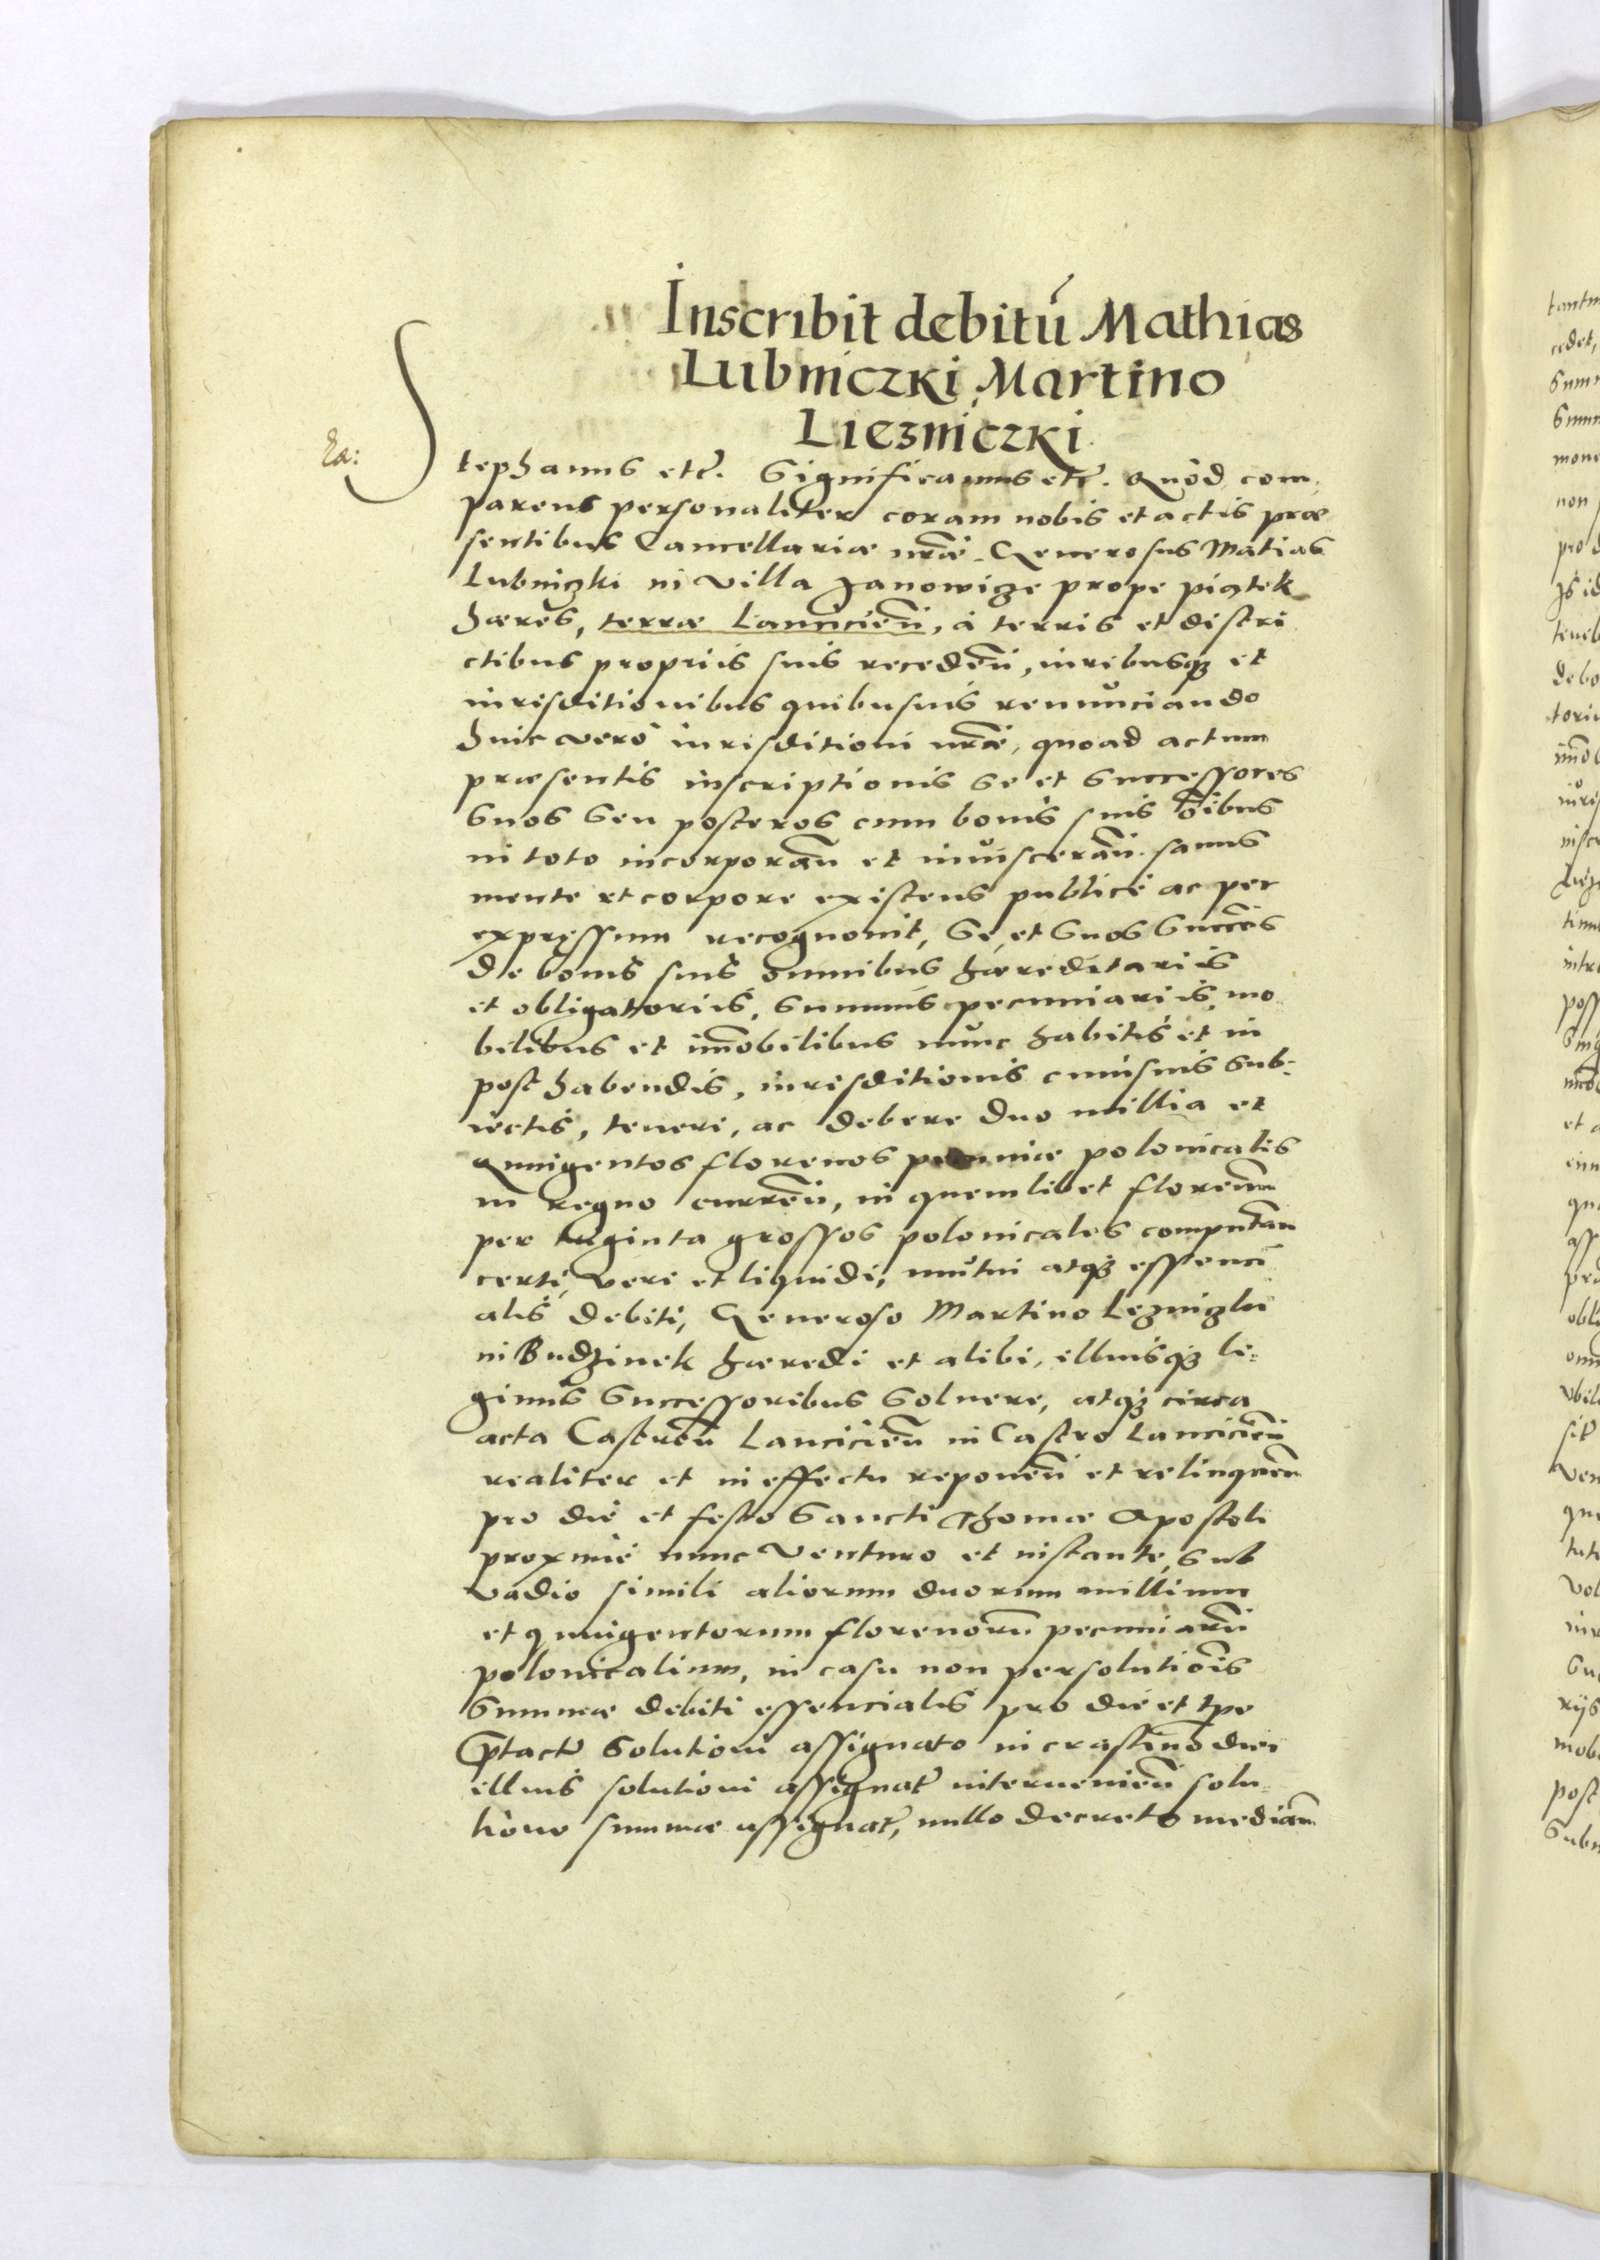 Inscribit debitū Mathias
Lubniczki Martino
Liezniczki
Stephanus etc̄. Significamus etc̄. Quod com,
parens personaliter coram nobis et actis præ
sentibus Cancellariæ nr̄æ. Generosus Matias
Lubniczki in villa Janowicze prope piątek
hæres, terræ Lancicien̄, à terris et distri
ctibus propriis suis receden̄, iuribusq3 et
iurisditionibus quibusuis renunciando
huic verò iurisditioni nr̄æ, quoad actum
præsentis inscriptionis se et successores
suos seu posteros cum bonis suis ōibus
in toto incorporan̄ et inuisceran̄. sanus
mente et corpore existens publicè ac per
expressum recognouit, se, et suos success̄
de bonis suis omnibus hæreditariis
et obligatoriis, summis pecuniariis, mo
bilibus et im̄obilibus nunc habitis et in
post habendis, iurisditionis cuiusuis sub-
iectis, teneri, ac debere duo millia et
quingentos florenos pecuniæ polonicalis
in regno curren̄, in quemlibet florenum
per triginta grossos polonicales computan̄
certi, veri et liquidi, mutui atq3 essenci
alis debiti, Generoso Martino Lezniczki
in Budzinek hæredi et alibi, illiusq3 le=
gimis successoribus soluere, atq3 circa
acta Castren̄ Lancicien̄ in Castro Lancicien̄
realiter et in effectu reponen̄ et relinquen̄
pro die et festo Sancti Thomæ Apostoli
proximè nunc venturo et instante, sub
vadio simili aliorum duorum millium
et quingentorum florenorū pecuniarū
polonicalium, in casu non persolutiōis
summæ debiti essencialis pro die et tp̄e
p̄tactu solutioni assignato in crastino diei
illius solutioni assignat̄ interuenien̄ solu
tione summæ assignat̄, nullo decreto median̄